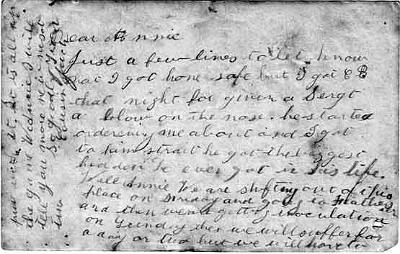 Dear Annie
Just a few lines to let know
that I got home safe but I got CB
that night for given a Sergt
a blow on the nose. he started
ordering me about and I got
to him strait he got the biggest
hidden he ever got in his life.
Well Annie We are shifting out of this
place on Sunday and going to
and then were getting inoculation
on Sunday then we will suffer for
a day or two but we will have to
put it is al
the game
tell you more in
So goodbye
Cousin Jack